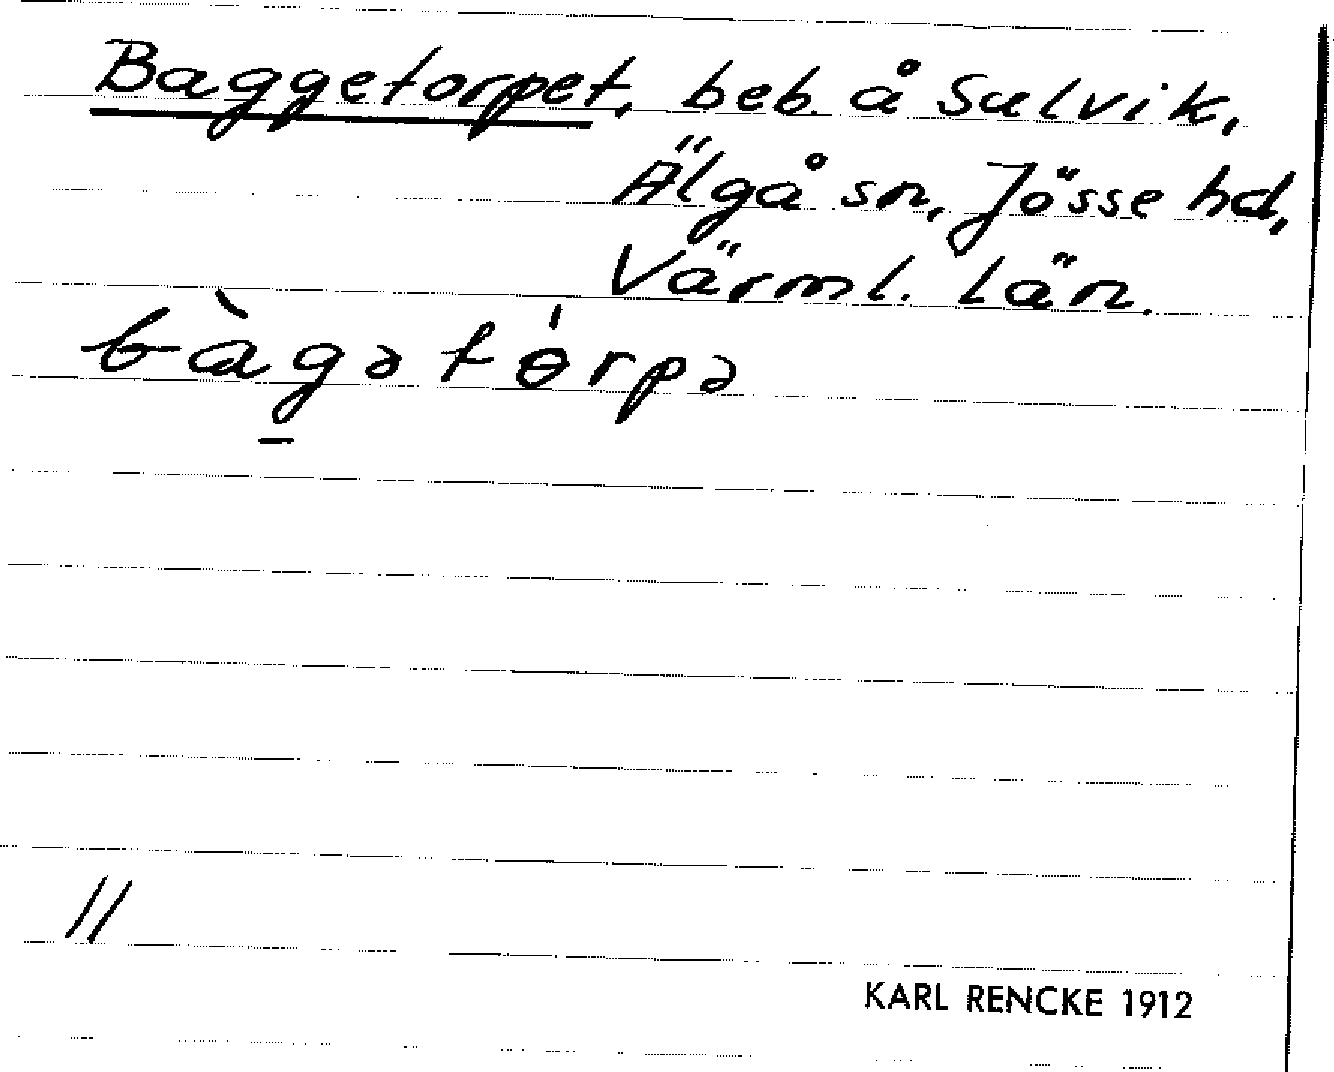 Baggetorpet, beb. å Sulvik,
Älgå sn, Jösse hd,
Värml. län.
bàg̠ə tɵ́rpə
//
KARL RENCKE 1912